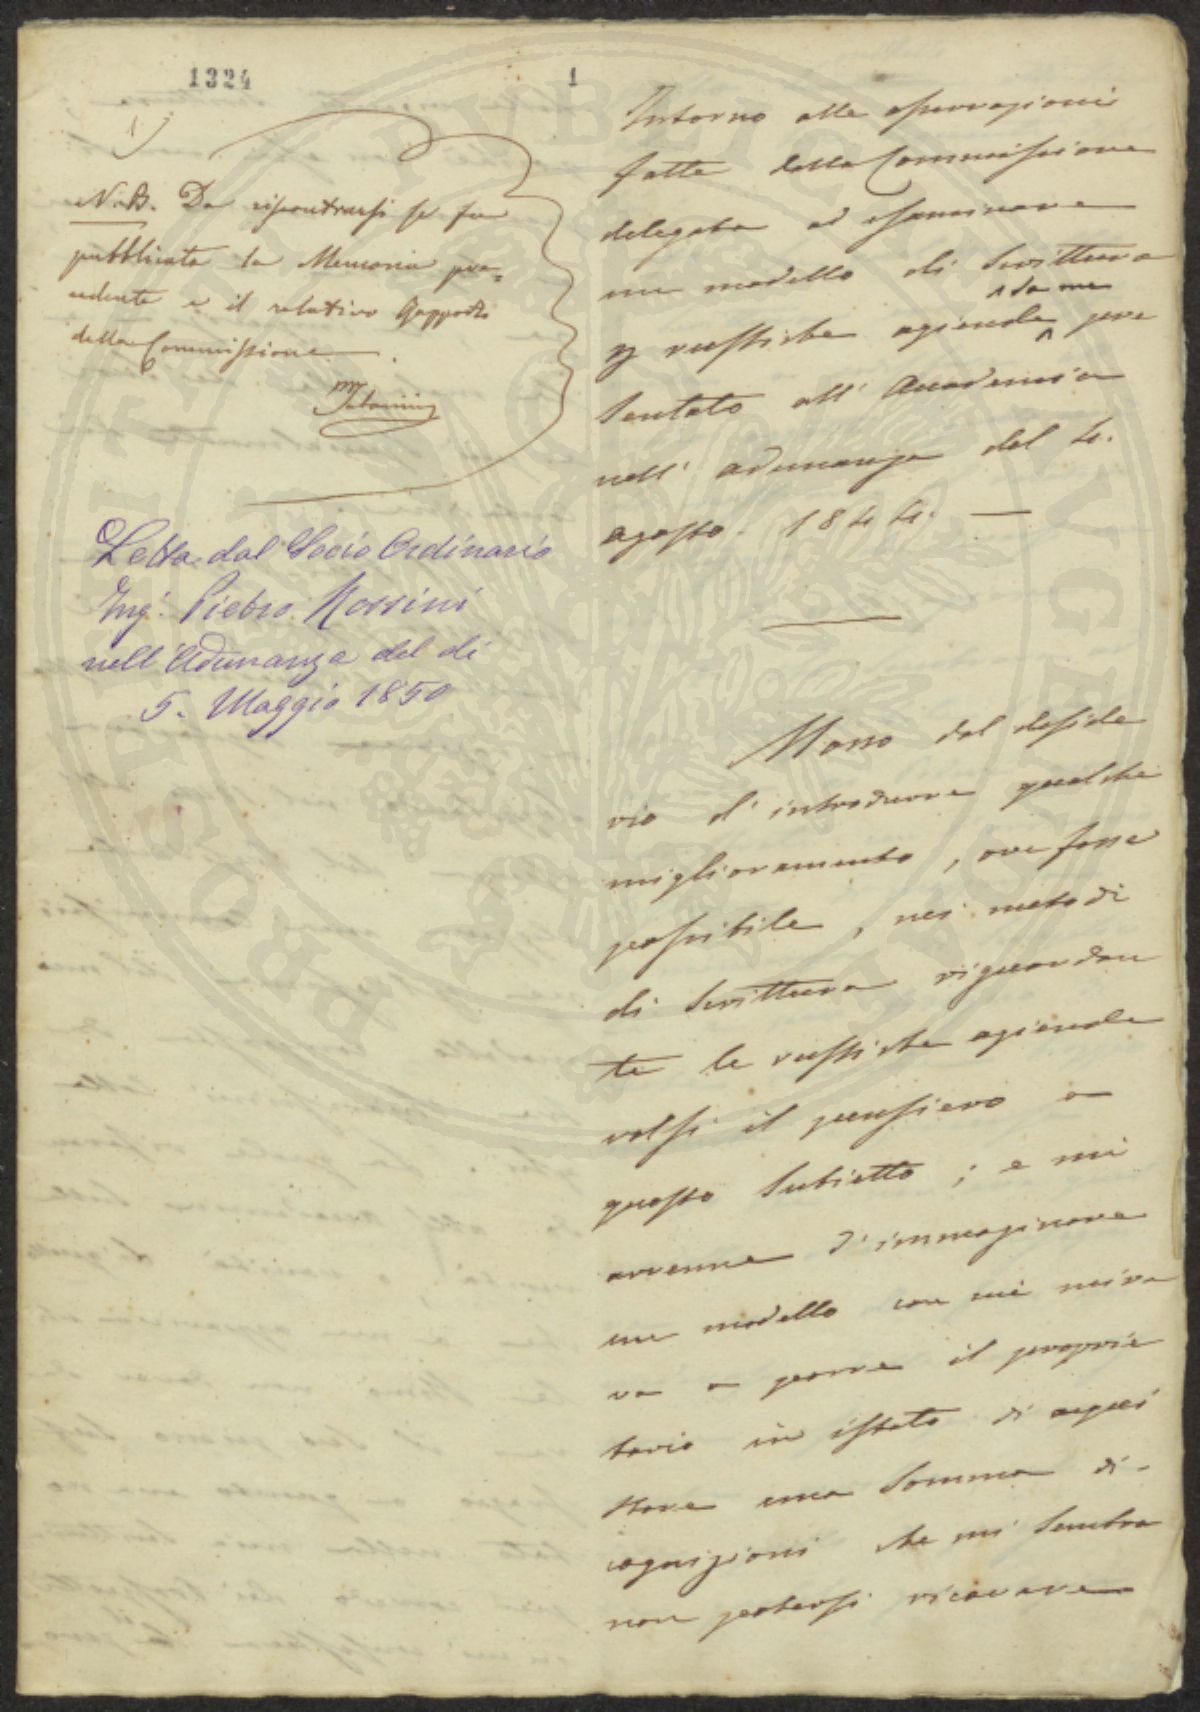 1324
1
N.B. Da riscontrarsi se fu
pubblicata la Memoria pre-
cedente e il relativo Rapporto
della Commissione.
Letta dal Socio Ordinario
Ing.r Pietro Rossini
nell'Adunanza del dì
5. Maggio 1850
Intorno alle osservazioni
fatte dalla Commissione
delegata ad esaminare
un modello di Scrittura
rustiche aziende da me pre
sentato all' Accademia
nell' adunanza del 4.
agosto 1844. —
Mosso dal deside
rio d' introdurre qualche
miglioramento, ove fosse
possibile, nei metodi
di Scrittura riguardan
te le rustiche aziende
volsi il pensiero a
questo Subietto; e mi
avvenne d'immaginare
un modello con cui mira
va a porre il proprie
tario in istato di acqui
stare una Somma di
cognizioni che mi Sembra
non potersi ricavare